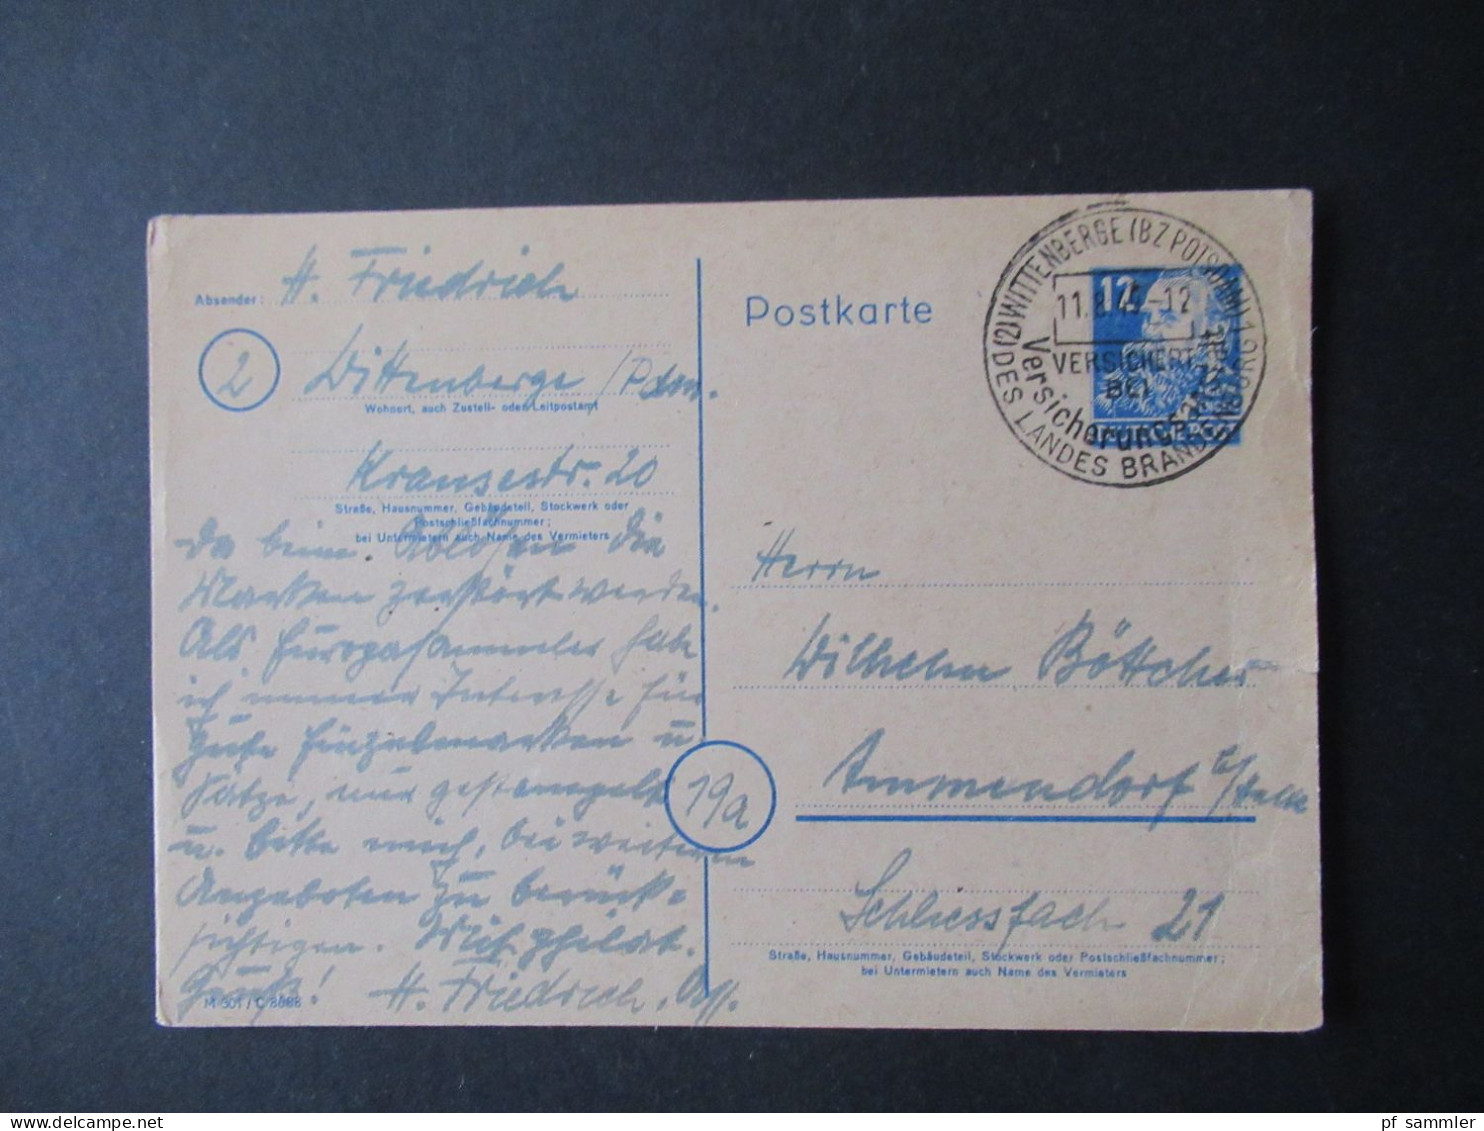 Absender: H. Friedrich
2 Wittenberge /Pdm.
Wohnort, auch Zustell- oder Leitpostamt
Krausestr. 20
Straße, Hausnummer, Gebäudeteil, Stockwerk oder
Postschließfachnummer;
bei Untermietern auch Name des Vermieters
Da beim Ablösen die
Marken zerstört werden.
Als Europasammler habe
ich immer Interesse für
gute Einzelmarken u.
Sätze, nur gestempelt
u. bitte mich, bei weiteren
Angeboten zu berück-
sichtigen. Mit philat.
Gruß! H. Friedrich,
M 301 / C 8088
Postkarte
12
(2) WITTENBERGE (BZ POTSDAM) 1
11.8. -12
VERSICHERT
BEI
DES LANDES BRANDENBURG
Herrn
Wilhelm Böttcher
19a Ammendorf
Schliessfach 21
Straße, Hausnummer, Gebäudeteil, Stockwerk oder Postschließfachnummer;
bei Untermietern auch Name des Vermieters
pf_sammler